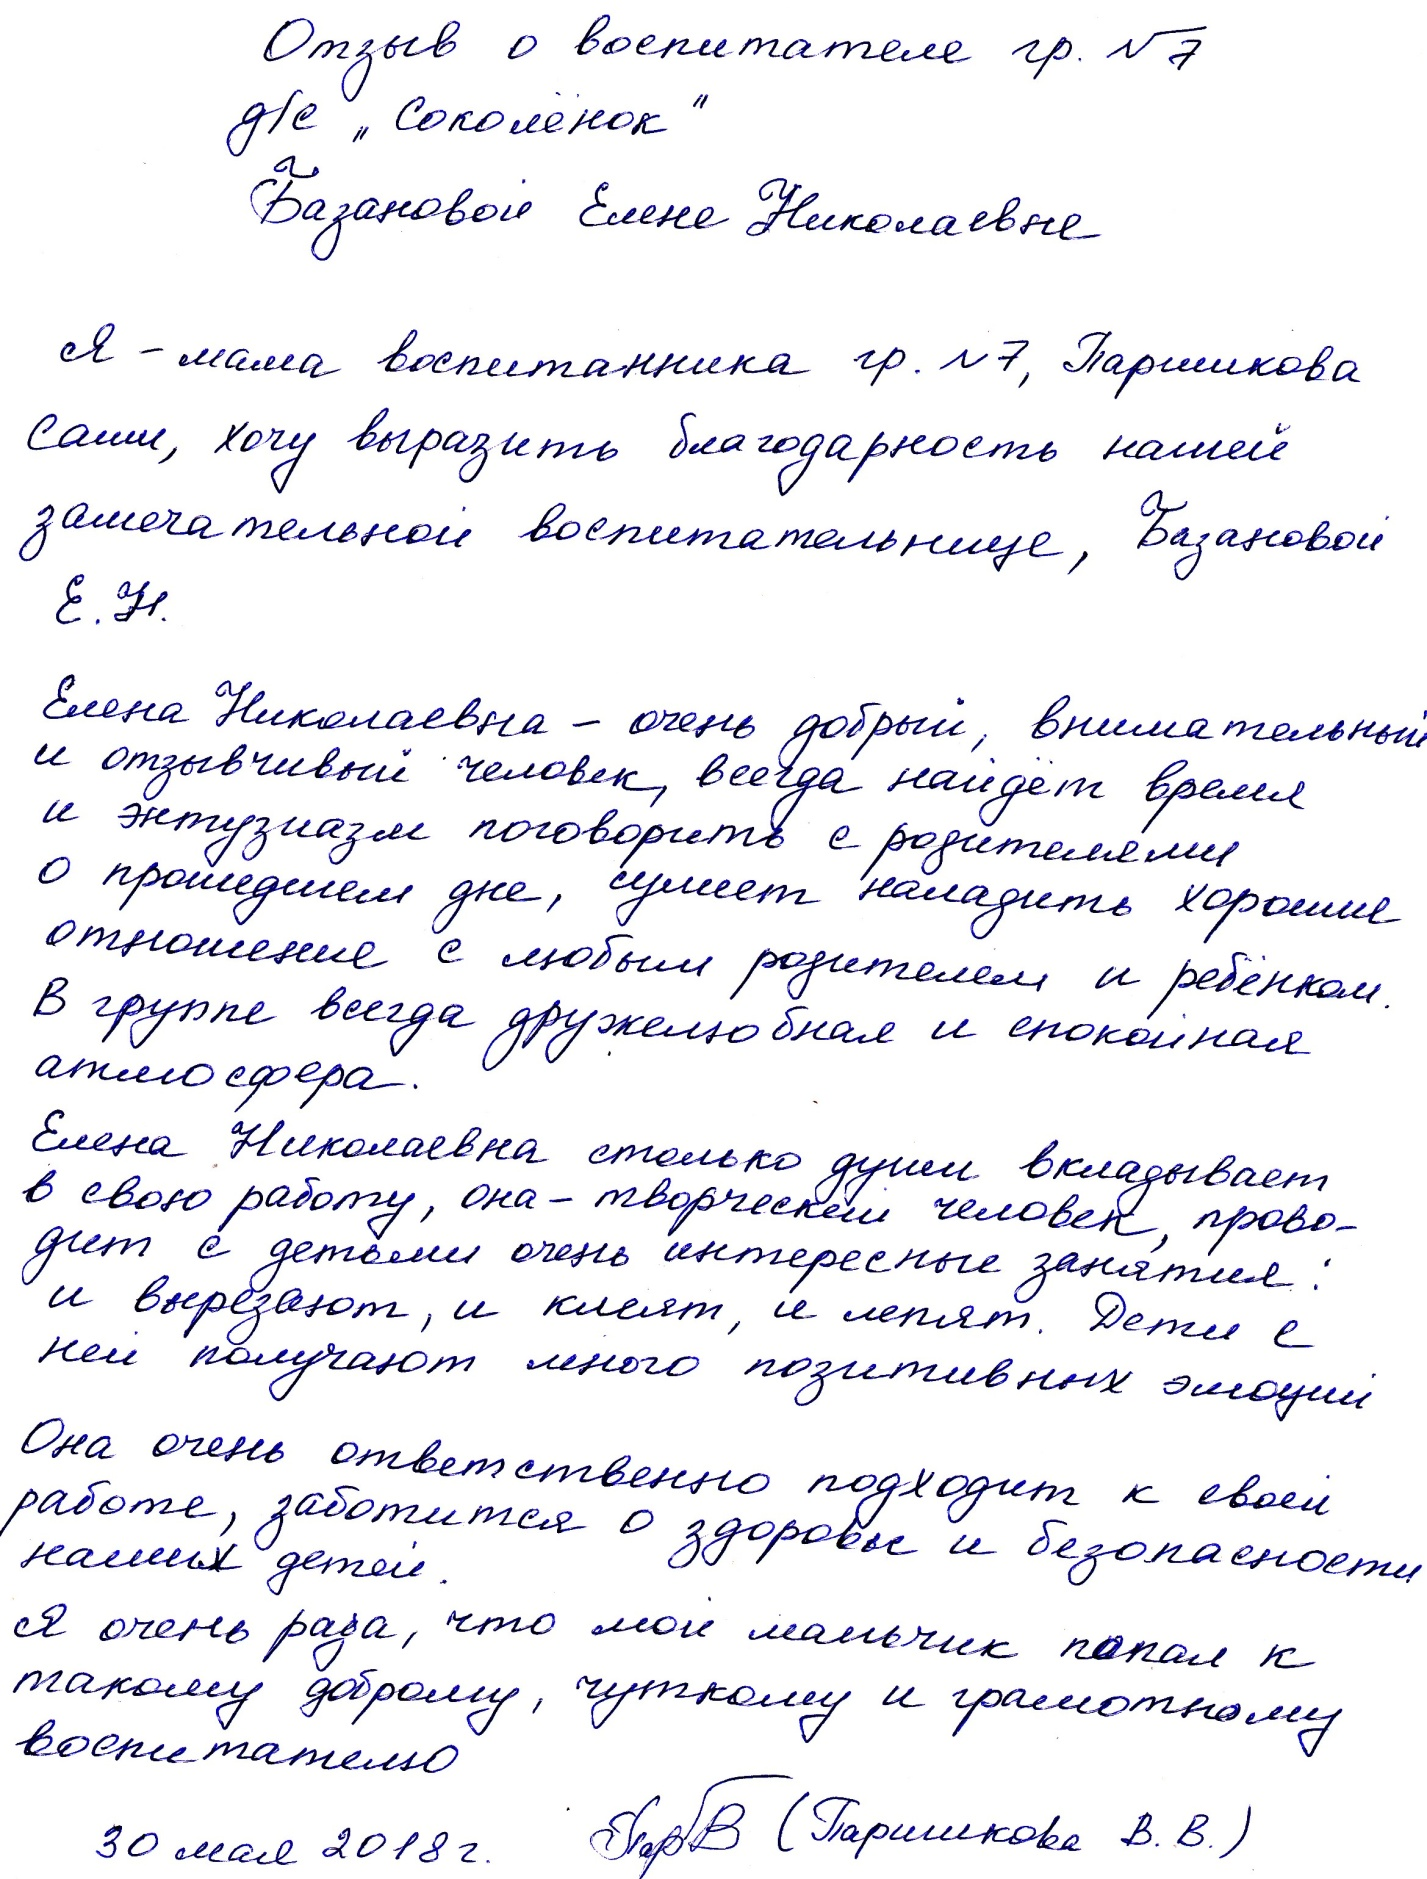 Отзыв о воспитателе гр. №7
д/с „Соколёнок"
Базановой Елене Николаевне
Я – мама воспитанника гр. №7, Паршикова
Саши, хочу выразить благодарность нашей
замечательной воспитательнице, Базановой
Е. Н.
Елена Николаевна – очень добрый, внимательный
и отзывчивый человек, всегда найдёт время
и энтузиазм поговорить с родителями
о прошедшем дне, сумеет наладить хорошие
отношение с любым родителем и ребёнком.
В группе всегда дружелюбная и спокойная
атмосфера.
Елена Николаевна столько души вкладывает
в свою работу, она – творческий человек, прово-
дит с детьми очень интересные занятия:
и вырезают, и клеят, и лепят. Дети с
ней получают много позитивных эмоций
Она очень ответственно подходит к своей
работе, заботится о здоровье и безопасности
наших детей.
Я очень рада, что мой мальчик попал к
такому доброму, чуткому и грамотному
воспитателю
30 мая 2018 г. (Паршикова В. В.)